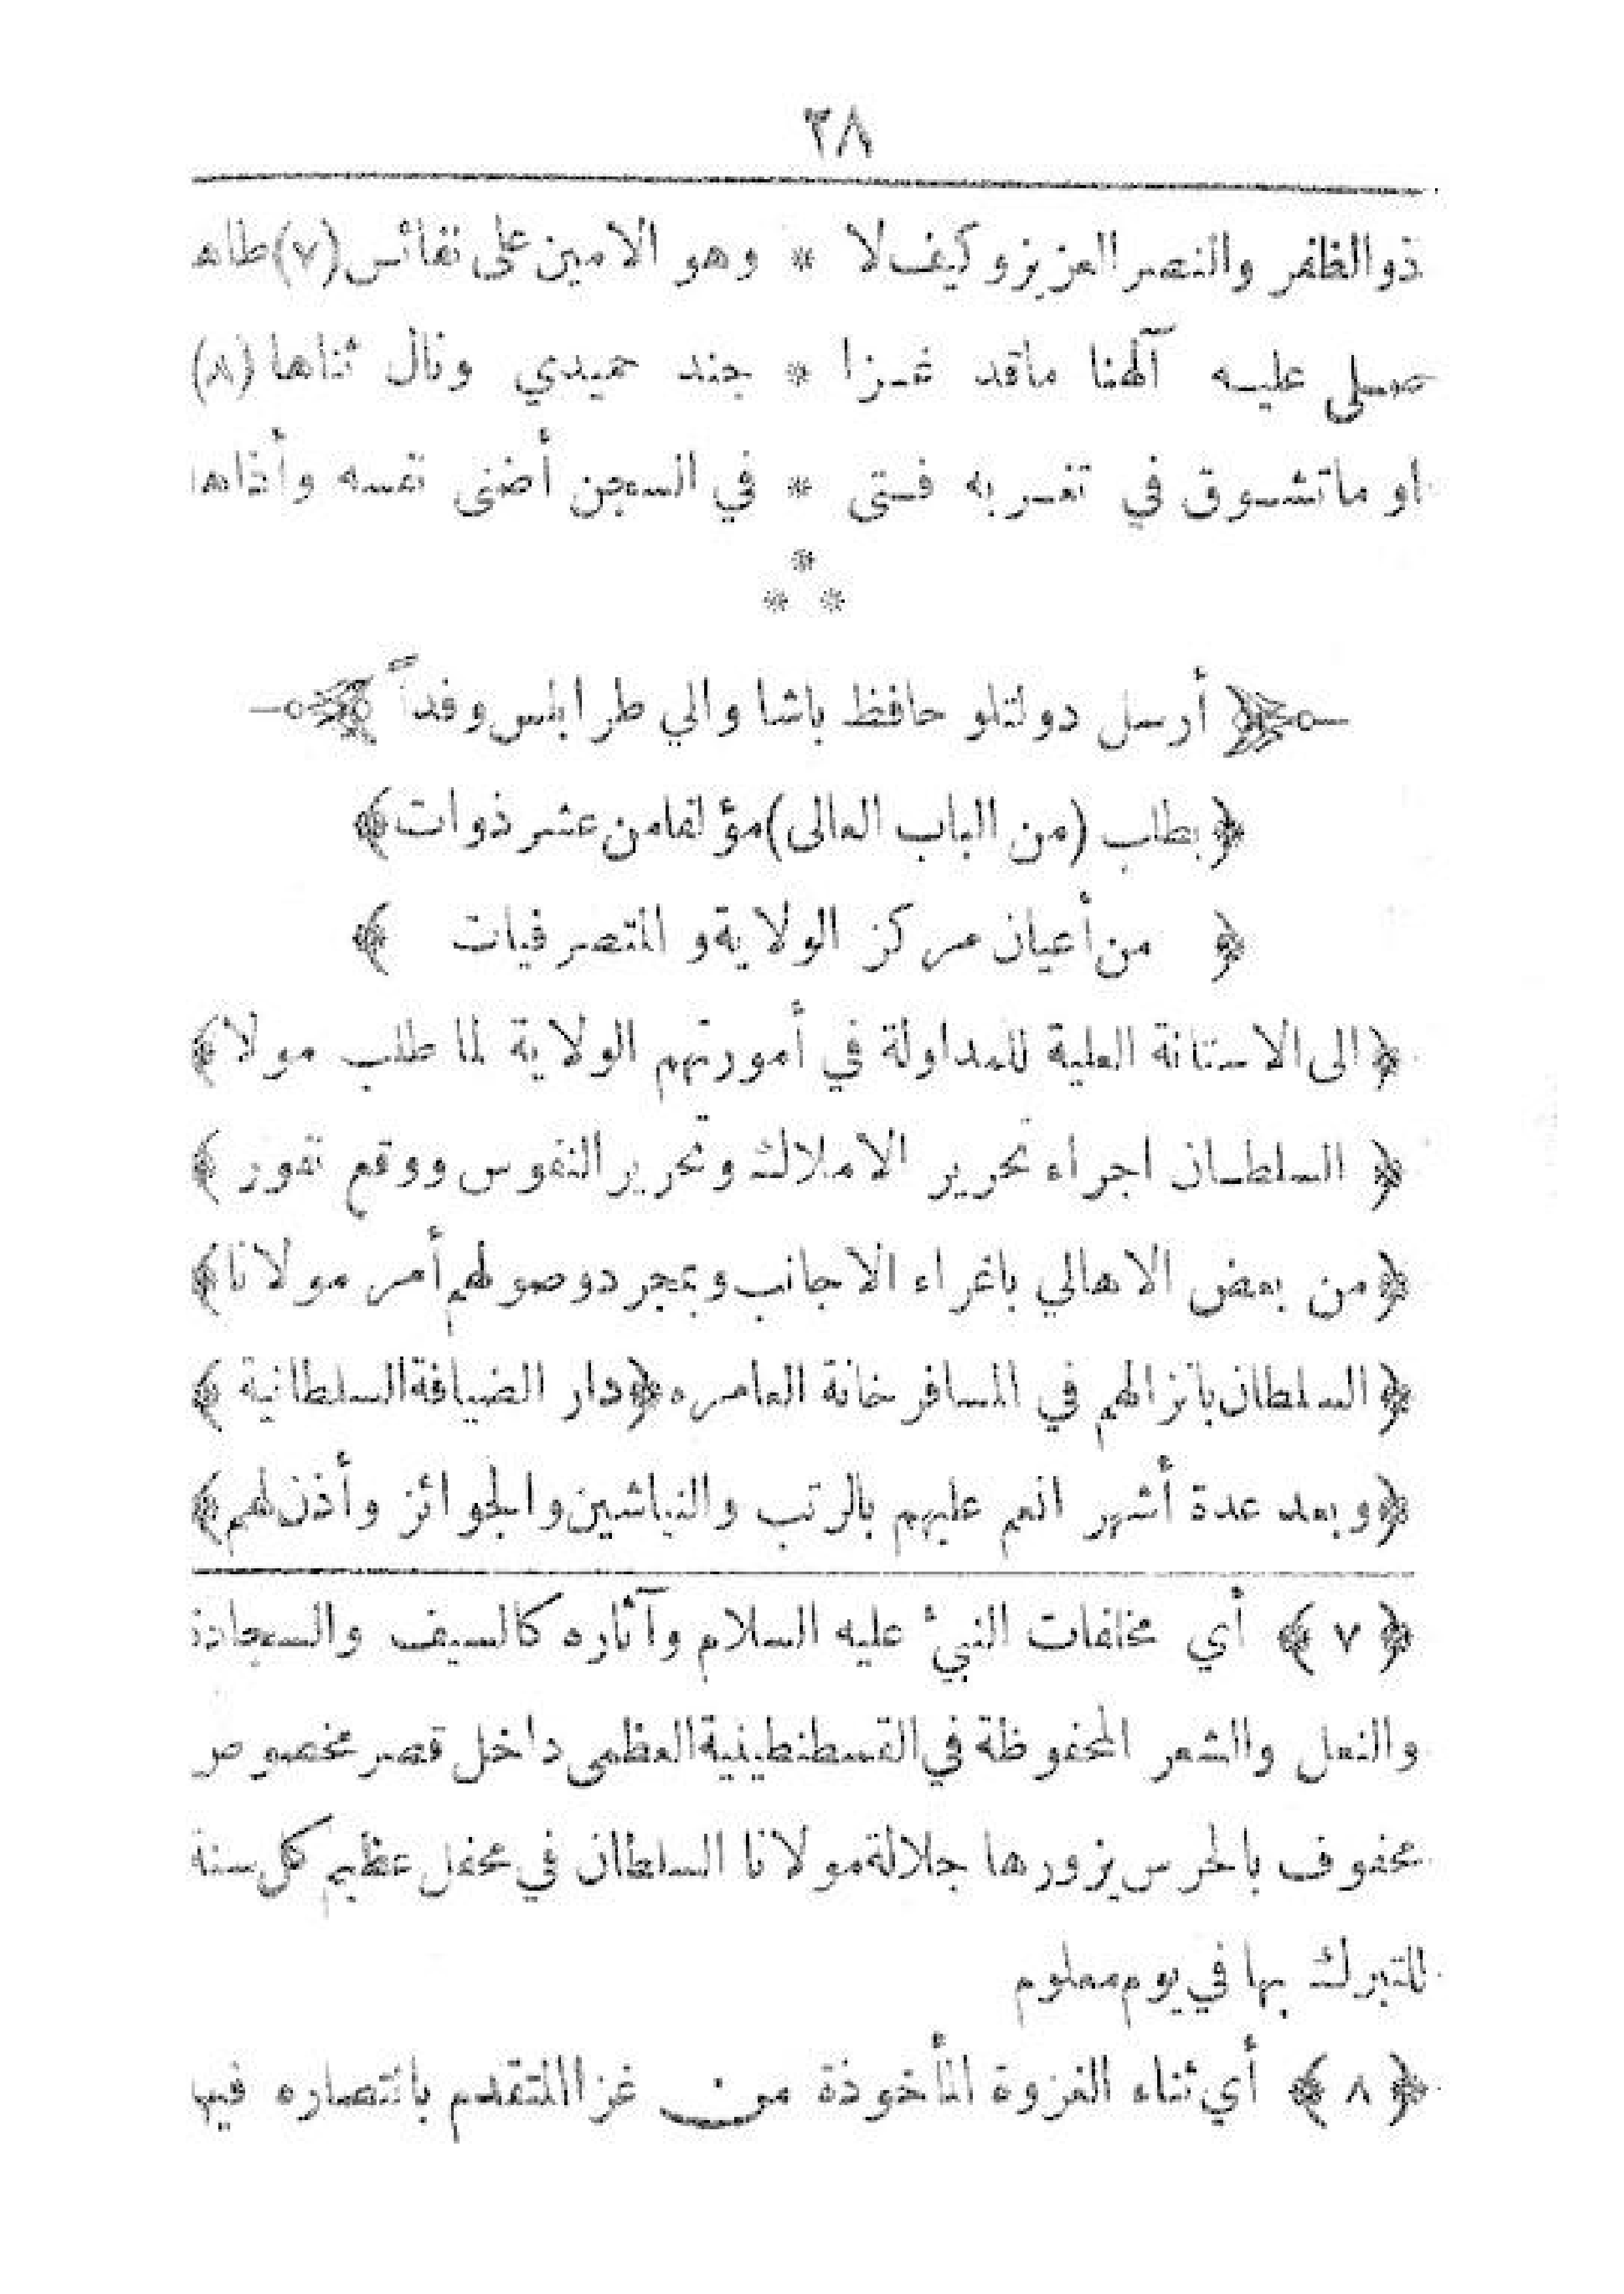 ٣٨
ذو الظفر والنصر العزيز وكيف لا * وهو الامين على نفائس (٧) طاها
صلى عليه آلهنا ما قد غزا * جند حميدي ونال ثناها (٨)
او ما تشوق في تغربه فتى * في السجن أضنى نفسه وأذاها
*
* *
أرسل دولتلو حافظ باشا والي طرابلس وفداً
﴿ بطلب (من الباب العالى) مؤلفا من عشر ذوات ﴾
﴿ من أعيان مركز الولاية والمتصرفيات ﴾
﴿ الى الاستانة العلية للمداولة في أمور تهم الولاية لما طلب مولانا ﴾
﴿ السلطان اجراء تحرير الاملاك وتحرير النفوس ووقع نفور ﴾
﴿ من بعض الاهالي باغراء الاجانب وبمجرد وصولهم أمر مولانا ﴾
﴿ السلطان بانزالهم في المسافر خانة العامره ﴿ دار الضيافة السلطانية ﴾
﴿ وبعد عدة أشهر انعم عليهم بالرتب والنياشين والجوائز وأذن لهم ﴾
﴿ ٧ ﴾ أي مخلفات النبيّ عليه السلام وآثاره كالسيف والسجادة
والنعل والشعر المحفوظة في القسطنطينية العظمى داخل قصر مخصوص
محفوف بالحرس يزورها جلالة مولانا السلطان في محفل عظيم كل سنة
للتبرك بها في يوم معلوم
﴿ ٨ ﴾ أي ثناء الغزوة المأخوذة من غزا المتقدم بانتصاره فيها